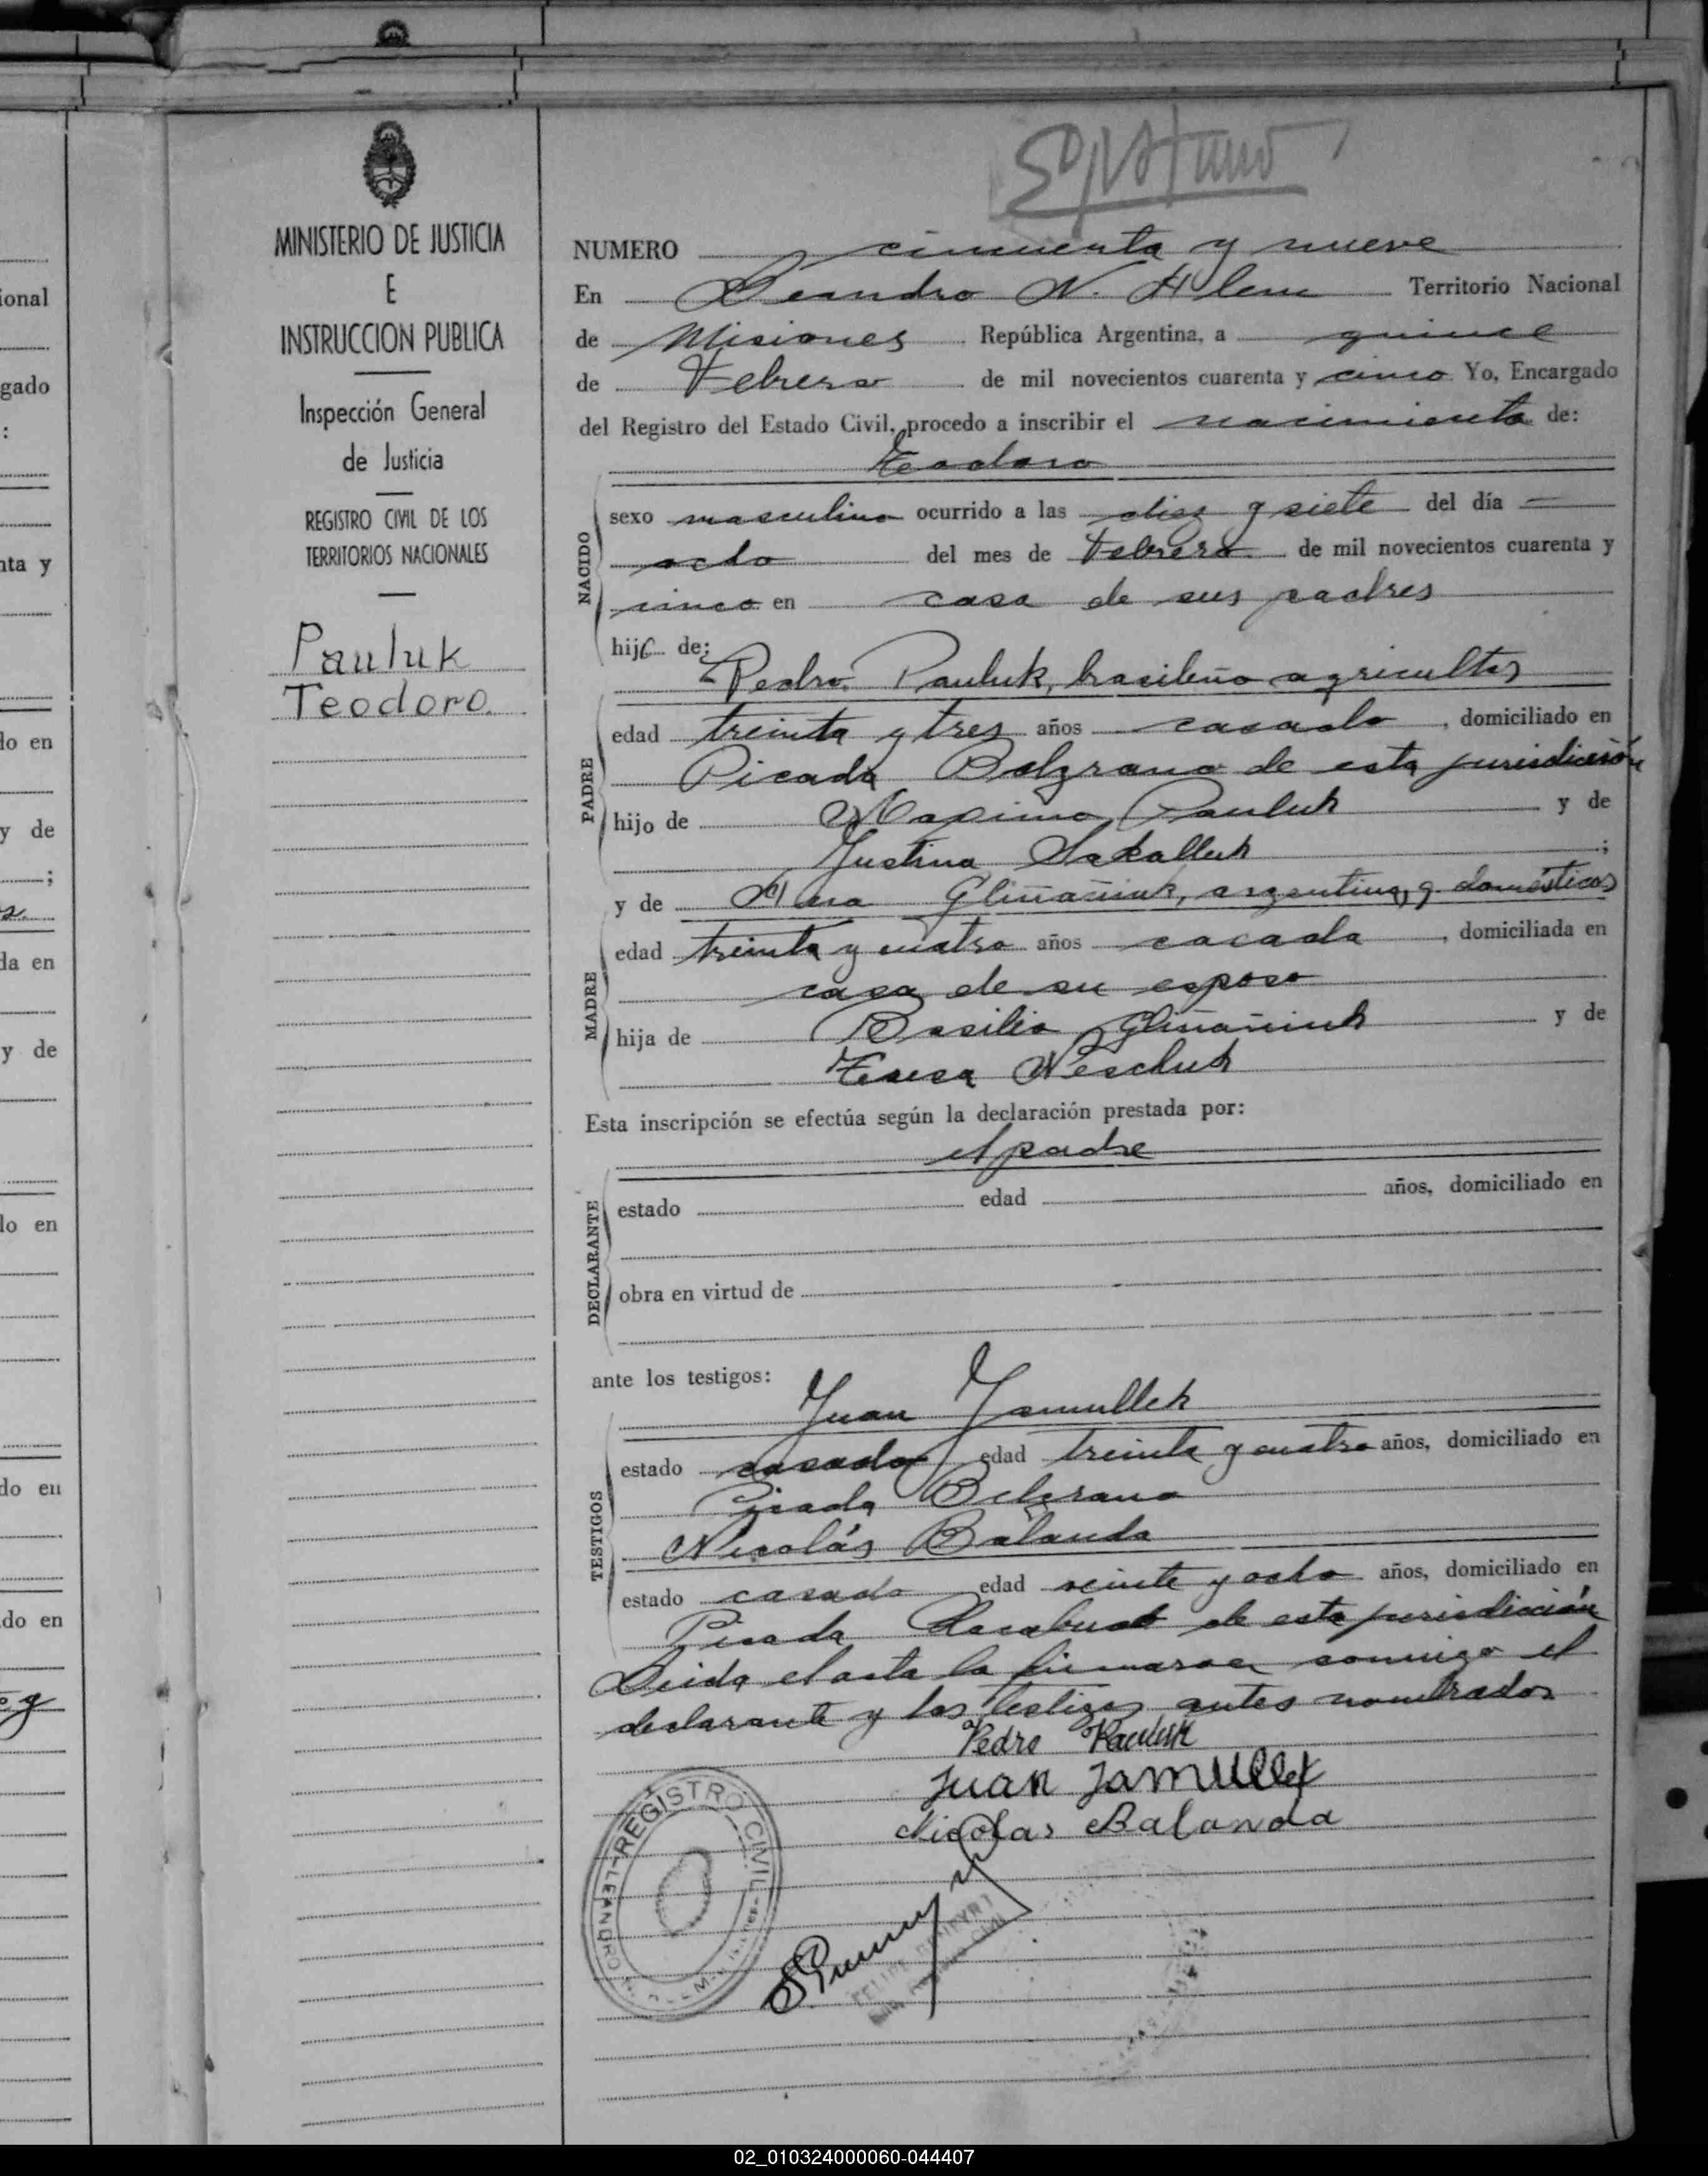 MINISTERIO DE JUSTICIA
E
INSTRUCCION PUBLICA
Inspección General
de Justicia
REGISTRO CIVIL DE LOS
TERRITORIOS NACIONALES
Pauluk
Teodoro.
NUMERO cincuenta y nueve
En Leandro N. Alem Territorio Nacional
de Misiones República Argentina, a quince
de Febrero de mil novecientos cuarenta y cinco Yo, Encargado
del Registro del Estado Civil, procedo a inscribir el nacimiento de:
Teodoro
NACIDO
sexo masculino ocurrido a las diez y siete del día
ocho del mes de Febrero de mil novecientos cuarenta y
cinco en casa de sus padres
hijo de:
Pedro Pauluk, brasileño agricultor
PADRE
edad treinta y tres años casado, domiciliado en
Picada Belgrano de esta jurisdicción
hijo de Maximo Pauluk y de
Justina Sakalluk;
y de Ana Gliñañiuk, argentina, q. domésticos
MADRE
edad treinta y cuatro años casada, domiciliada en
casa de su esposo
hija de Basilio Gliñañiuk y de
Teresa Nescluk
Esta inscripción se efectúa según la declaración prestada por:
el padre
DECLARANTE
estado edad años, domiciliado en
obra en virtud de
ante los testigos:
Juan Jamullek
TESTIGOS
estado casado edad treinta y cuatro años, domiciliado en
Picada Belgrano
Nicolás Balanda
estado casado edad veinte y ocho años, domiciliado en
Picada de esta jurisdicción
Leida el acta la firmaron conmigo el
declarante y los testigos antes nombrados
Pedro Pauluk
Juan Jamullek
Nicolas Balanda
REGISTRO CIVIL
LEANDRO N.
FELIPE
02_010324000060-044407